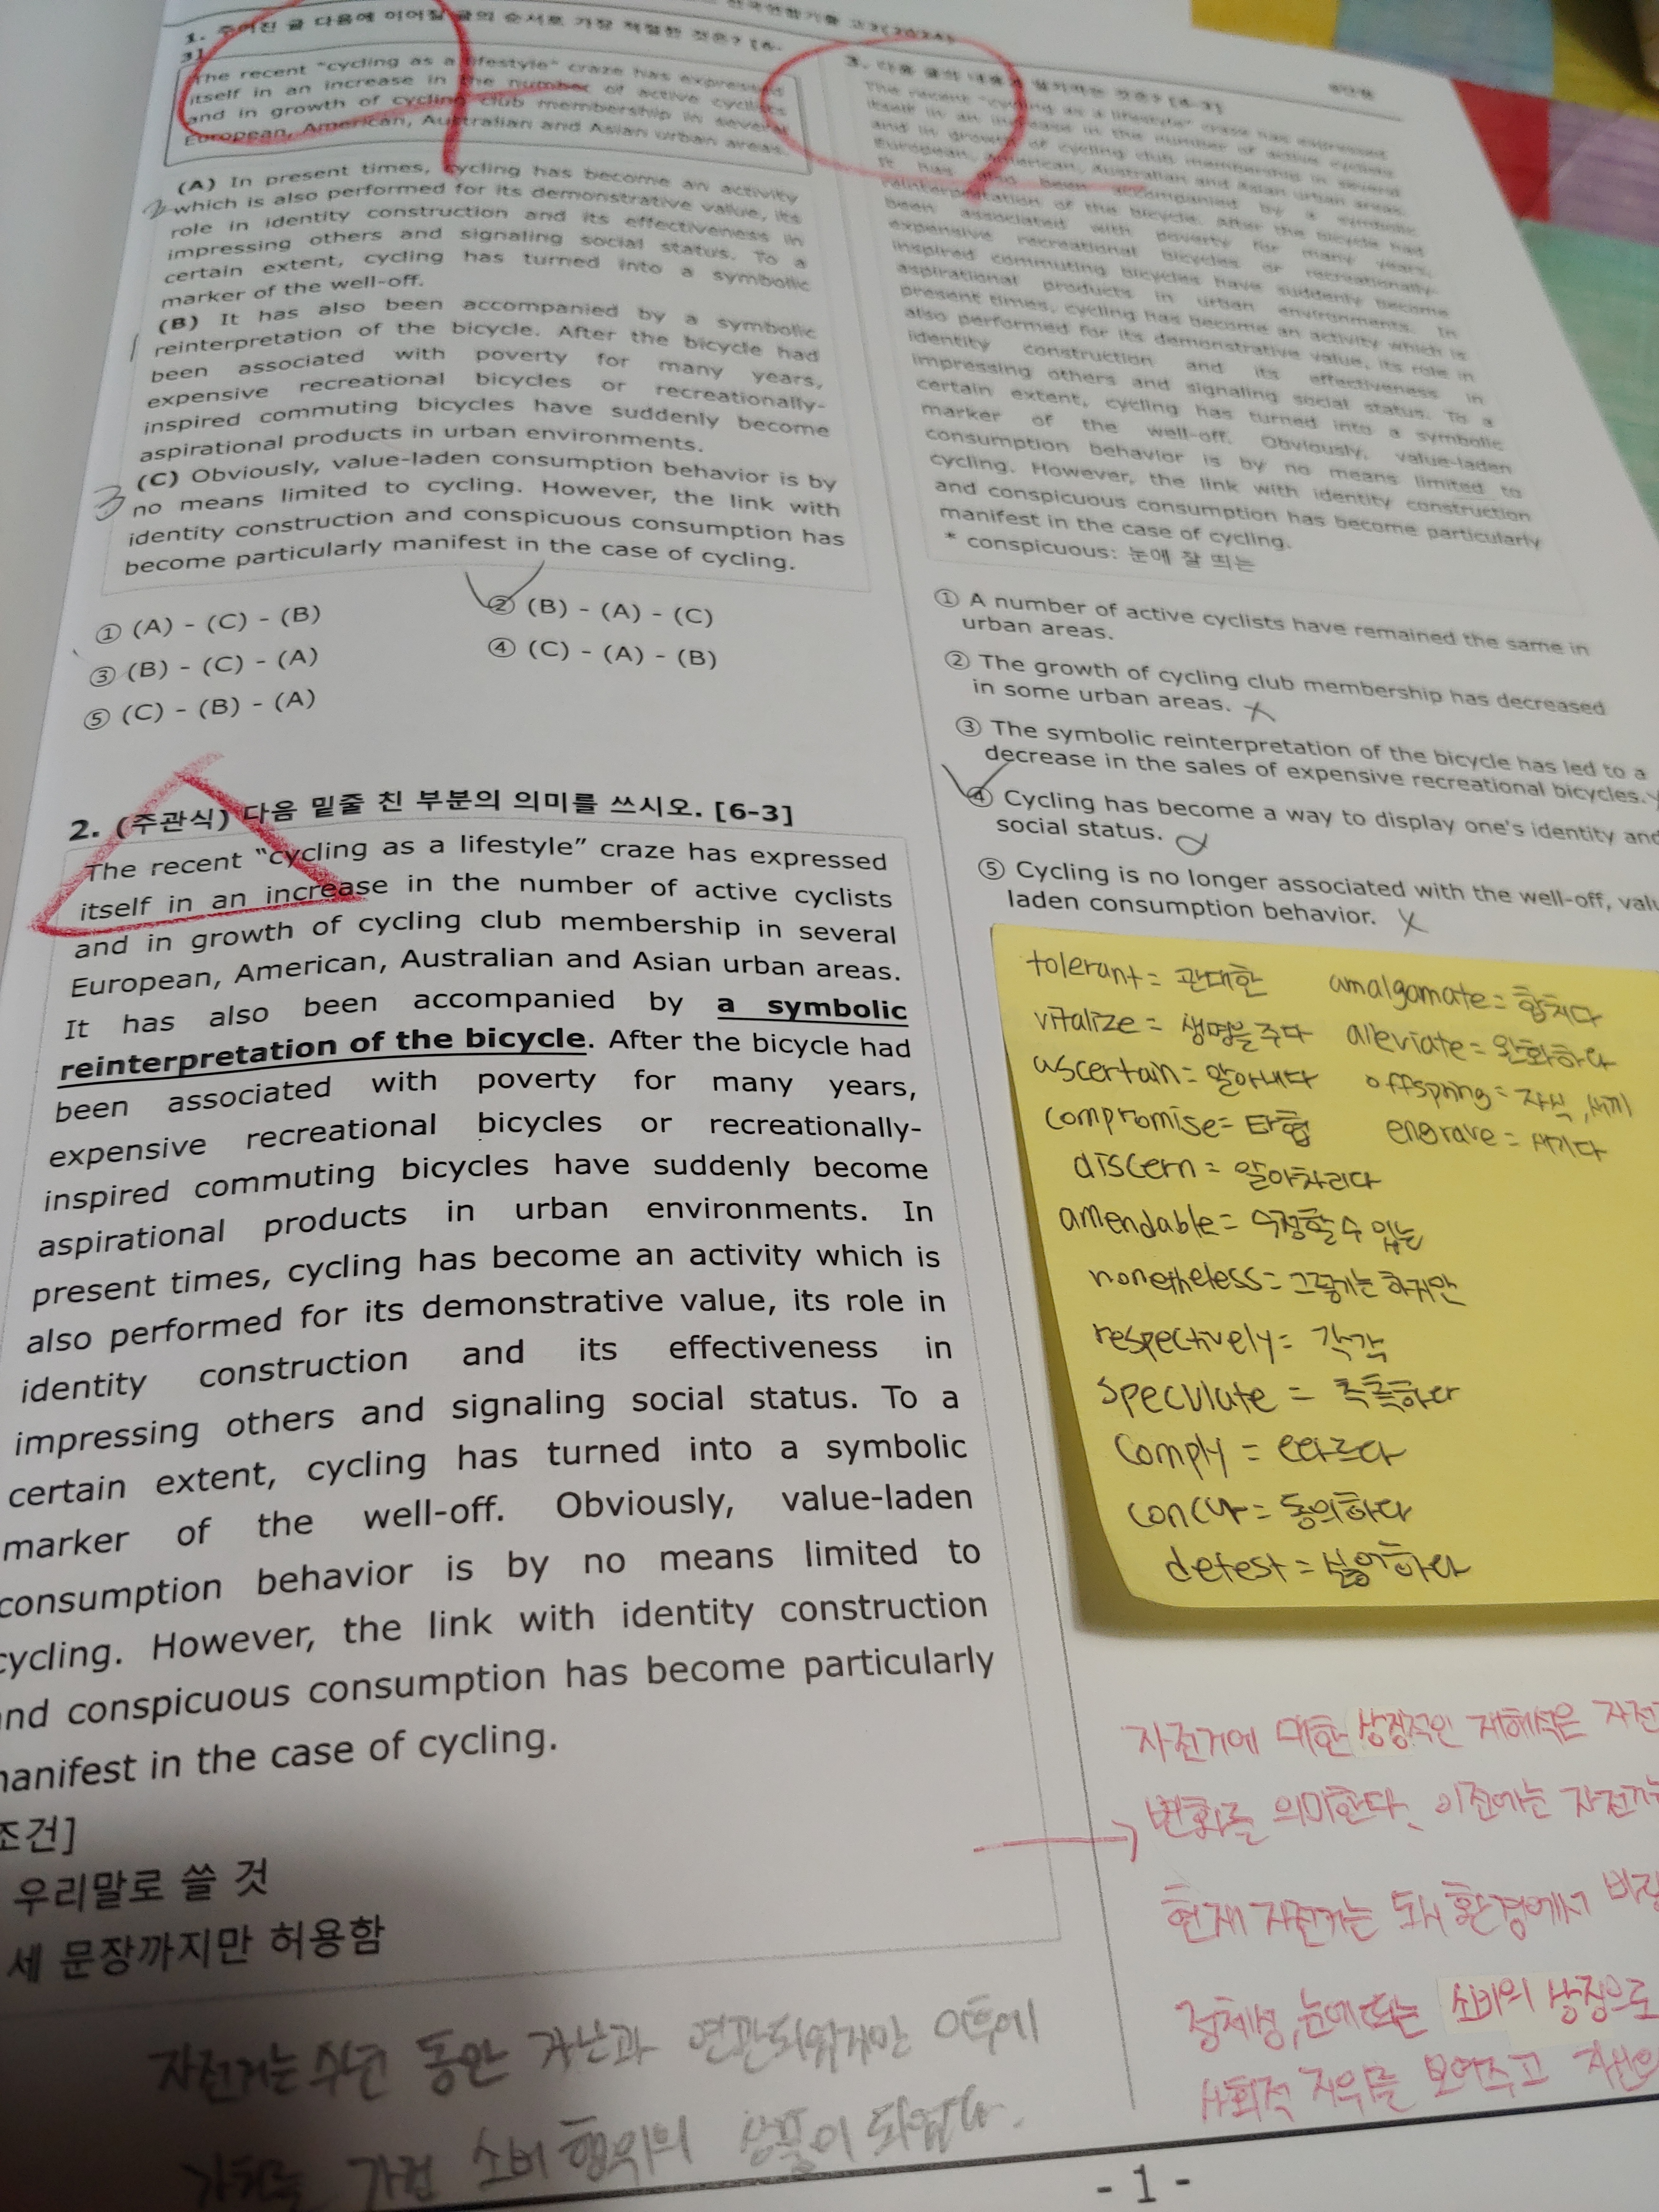 1. 주어진 글 다음에 이어질 글의 순서로 가장 적절한 것은? [6-
3]
The recent "cycling as a lifestyle" craze has expressed
itself in an increase in the number of active cyclists
and in growth of cycling club membership in several
European, American, Australian and Asian urban areas.
(A) In present times, cycling has become an activity
2 which is also performed for its demonstrative value, its
role in identity construction and its effectiveness in
impressing others and signaling social status. To a
certain extent, cycling has turned into a symbolic
marker of the well-off.
(B) It has also been accompanied by a symbolic
1 reinterpretation of the bicycle. After the bicycle had
been associated with poverty for many years,
expensive recreational bicycles or recreationally-
inspired commuting bicycles have suddenly become
aspirational products in urban environments.
(C) Obviously, value-laden consumption behavior is by
3 no means limited to cycling. However, the link with
identity construction and conspicuous consumption has
become particularly manifest in the case of cycling.
① (A) - (C) - (B)
② (B) - (A) - (C)
③ (B) - (C) - (A)
④ (C) - (A) - (B)
⑤ (C) - (B) - (A)
2. (주관식) 다음 밑줄 친 부분의 의미를 쓰시오. [6-3]
The recent "cycling as a lifestyle" craze has expressed
itself in an increase in the number of active cyclists
and in growth of cycling club membership in several
European, American, Australian and Asian urban areas.
It has also been accompanied by a symbolic
reinterpretation of the bicycle. After the bicycle had
been associated with poverty for many years,
expensive recreational bicycles or recreationally-
inspired commuting bicycles have suddenly become
aspirational products in urban environments. In
present times, cycling has become an activity which is
also performed for its demonstrative value, its role in
identity construction and its effectiveness in
impressing others and signaling social status. To a
certain extent, cycling has turned into a symbolic
marker of the well-off. Obviously, value-laden
consumption behavior is by no means limited to
cycling. However, the link with identity construction
and conspicuous consumption has become particularly
manifest in the case of cycling.
조건]
우리말로 쓸 것
세 문장까지만 허용함
자전거는 수년 동안 가난과 연관되었지만 이후에
가치를 가진 소비 행위의 상품이 되었다.
3. 다음 글의 내용과 일치하는 것은? [6-3]
The recent "cycling as a lifestyle" craze has expressed
itself in an increase in the number of active cyclists
and in growth of cycling club membership in several
European, American, Australian and Asian urban areas.
It has also been accompanied by a symbolic
reinterpretation of the bicycle. After the bicycle had
been associated with poverty for many years,
expensive recreational bicycles or recreationally-
inspired commuting bicycles have suddenly become
aspirational products in urban environments. In
present times, cycling has become an activity which is
also performed for its demonstrative value, its role in
identity construction and its effectiveness in
impressing others and signaling social status. To a
certain extent, cycling has turned into a symbolic
marker of the well-off. Obviously, value-laden
consumption behavior is by no means limited to
cycling. However, the link with identity construction
and conspicuous consumption has become particularly
manifest in the case of cycling.
* conspicuous: 눈에 잘 띄는
① A number of active cyclists have remained the same in
urban areas.
② The growth of cycling club membership has decreased
in some urban areas.
③ The symbolic reinterpretation of the bicycle has led to a
decrease in the sales of expensive recreational bicycles.
④ Cycling has become a way to display one's identity and
social status.
⑤ Cycling is no longer associated with the well-off, valu
laden consumption behavior.
tolerant = 관대한 amalgamate = 합치다
vitalize = 생명을 주다 alleviate = 완화하다
ascertain = 알아내다 offspring = 자식, 새끼
compromise = 타협 engrave = 새기다
discern = 알아차리다
amendable = 수정할 수 있는
nonetheless = 그렇기는 하지만
respectively = 각각
speculate = 추측하다
comply = 따르다
concur = 동의하다
detest = 싫어하다
자전거에 대한 상징적인 재해석은 자전
변화를 의미한다. 이전에는 자전거는
현재 자전거는 도시 환경에서
정체성, 눈에 띄는 소비의 상징으로
사회적 지위를 보여주고 자신의
- 1 -